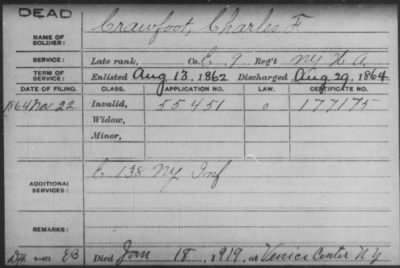 DEAD
NAME OF SOLDIER: Crawfoot, Charles F
SERVICE: Late rank, Co. E, 9 Reg't NY H A.
TERM OF SERVICE: Enlisted Aug 13, 1862 Discharged Aug 29, 1864
DATE OF FILING. CLASS. APPLICATION NO. LAW. CERTIFICATE NO.
1864 Nov. 22 Invalid, 55451 177175
Widow,
Minor,
ADDITIONAL SERVICES: E 138 NY Inf
REMARKS:
EB Died Jan 18, 1919, at Venice Center NY